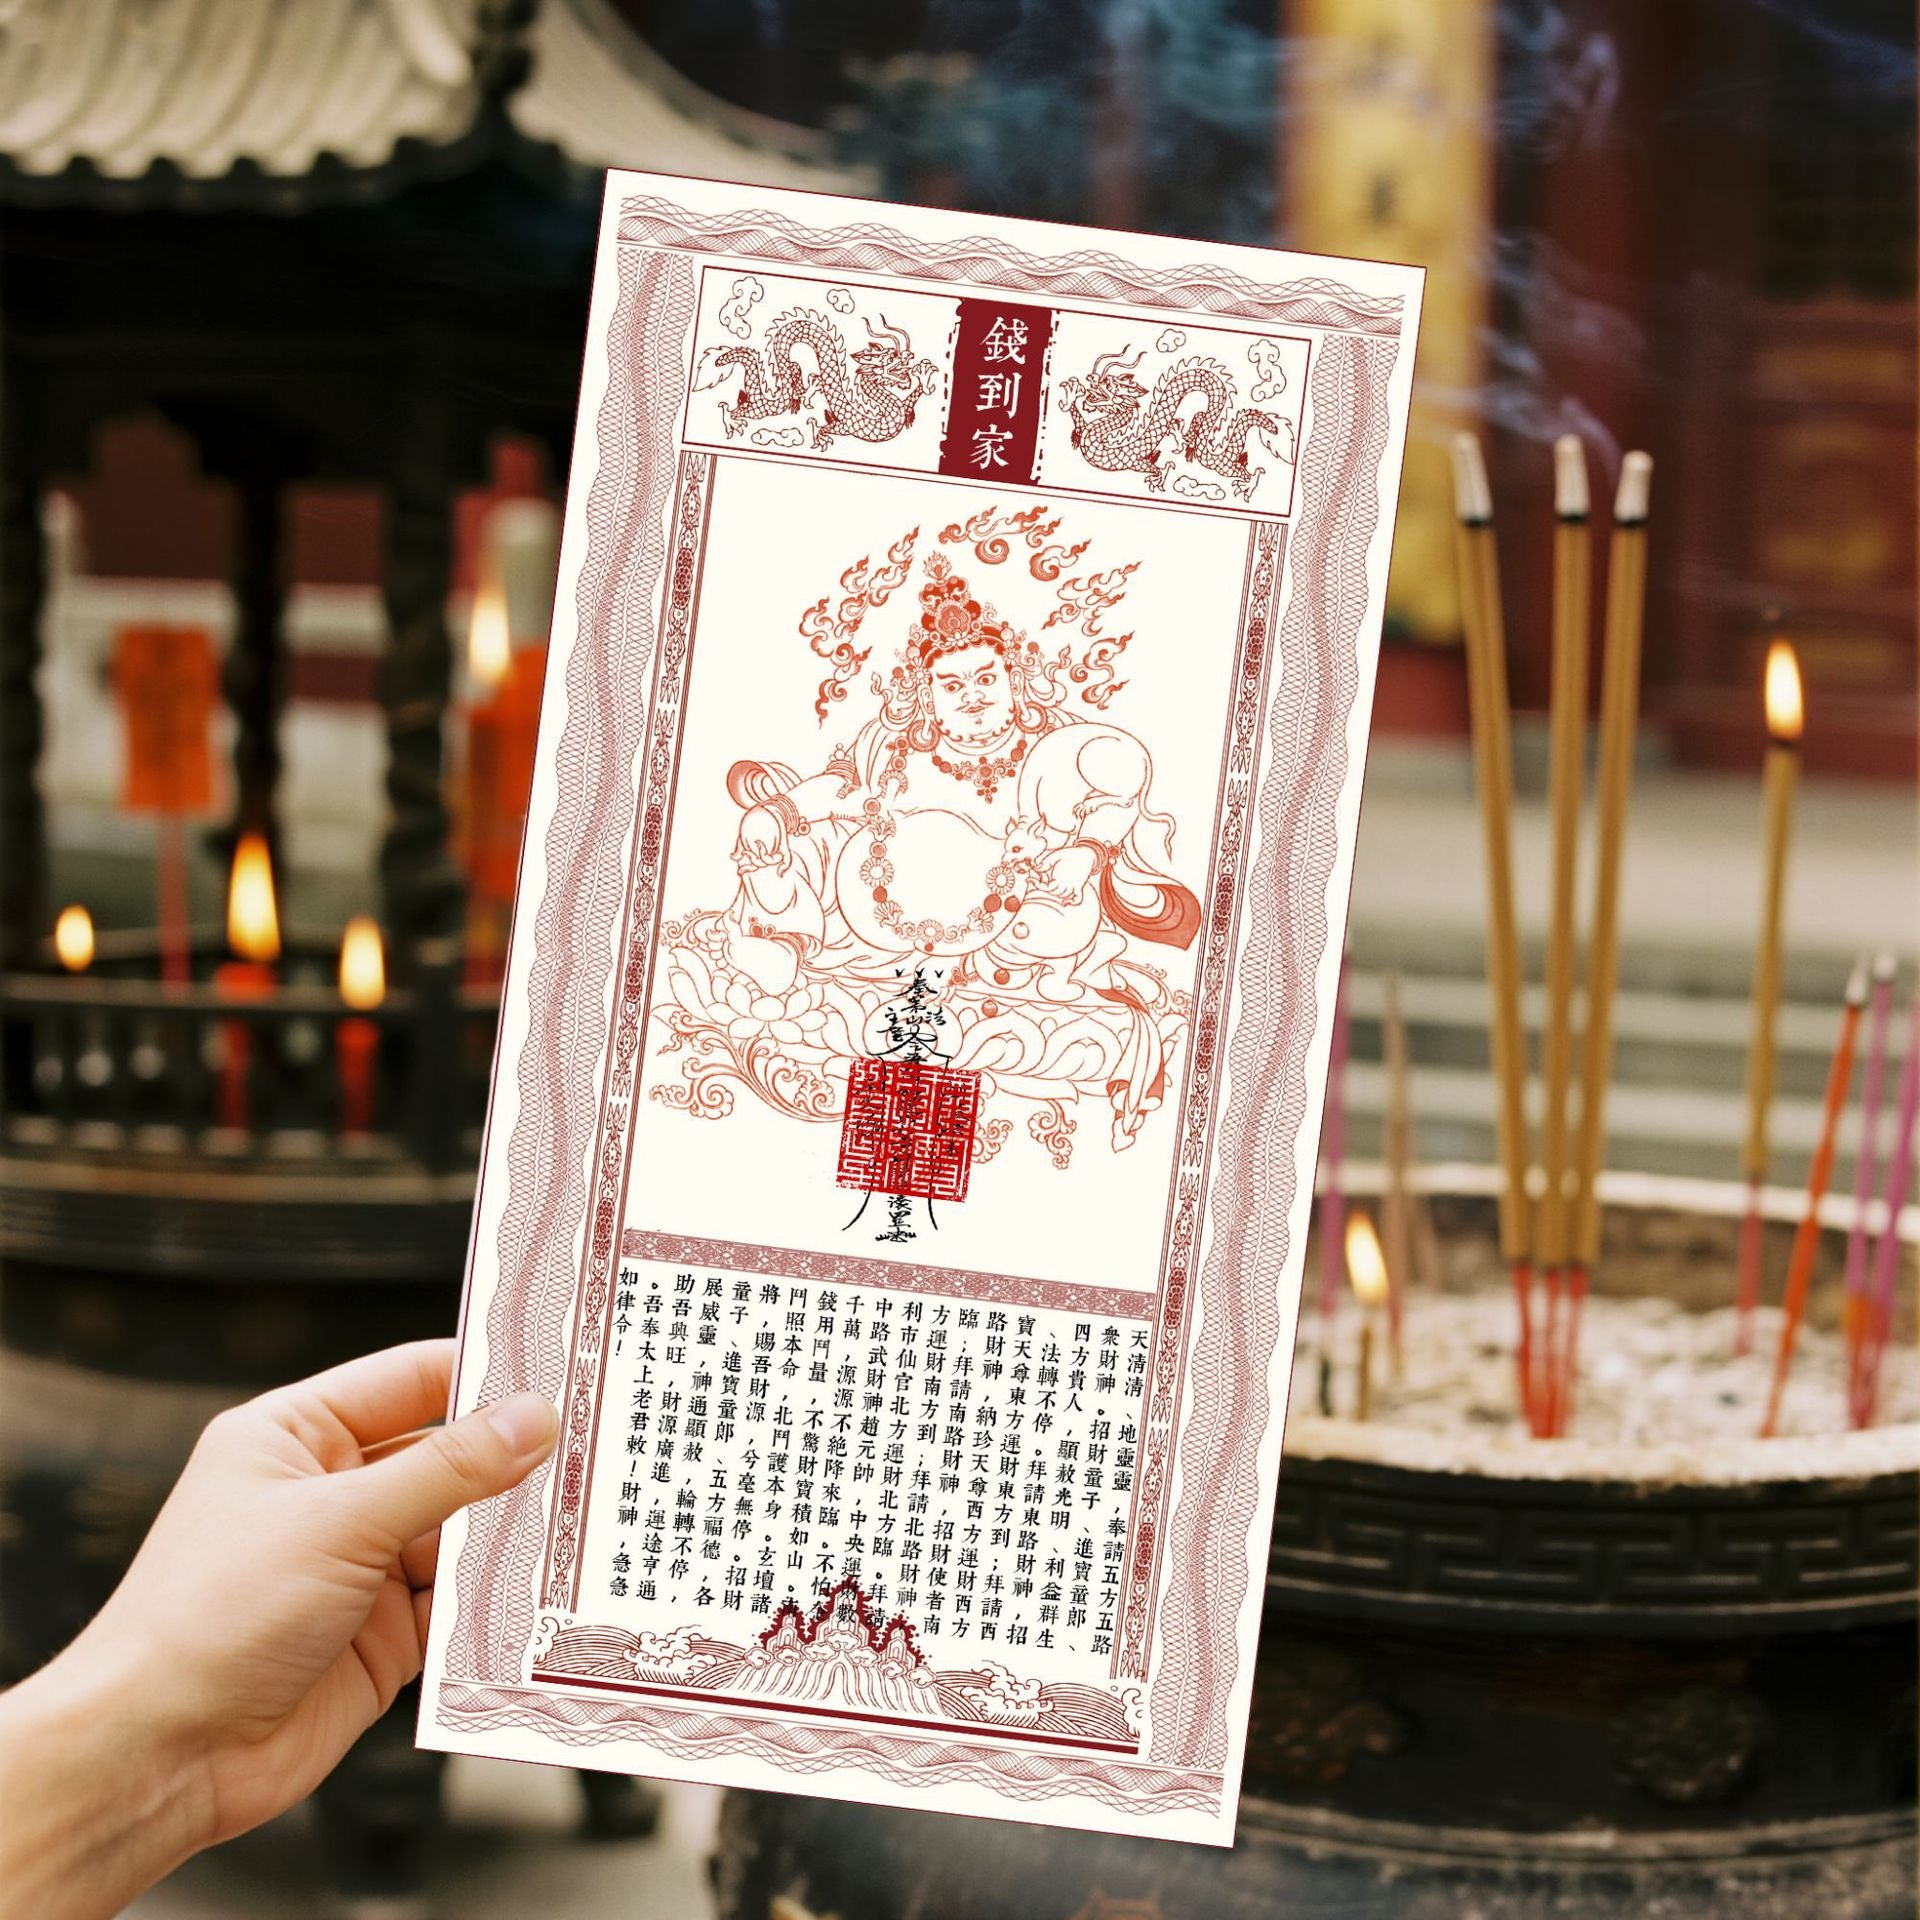 錢到家
天清清、地靈靈，奉請五方五路
衆財神。招財童子、進寶童郎、
四方貴人，顯赦光明、利益群生
、法轉不停。拜請東路財神，招
寶天尊東方運財東方到；拜請西
路財神，納珍天尊西方運財西方
臨；拜請南路財神，招財使者南
方運財南方到；拜請北路財神
利市仙官北方運財北方臨。拜請
中路武財神趙元帥，中央運財數
千萬，源源不絕降來臨。不怕金
錢用鬥量，不驚財寶積如山。
鬥照本命，北鬥護本身。玄壇諸
將，賜吾財源，兮毫無停。招財
童子、進寶童郎、五方福德，各
展威靈，神通顯赦，輪轉不停，
助吾興旺，財源廣進，運途亨通
。吾奉太上老君敕！財神，急急
如律令！